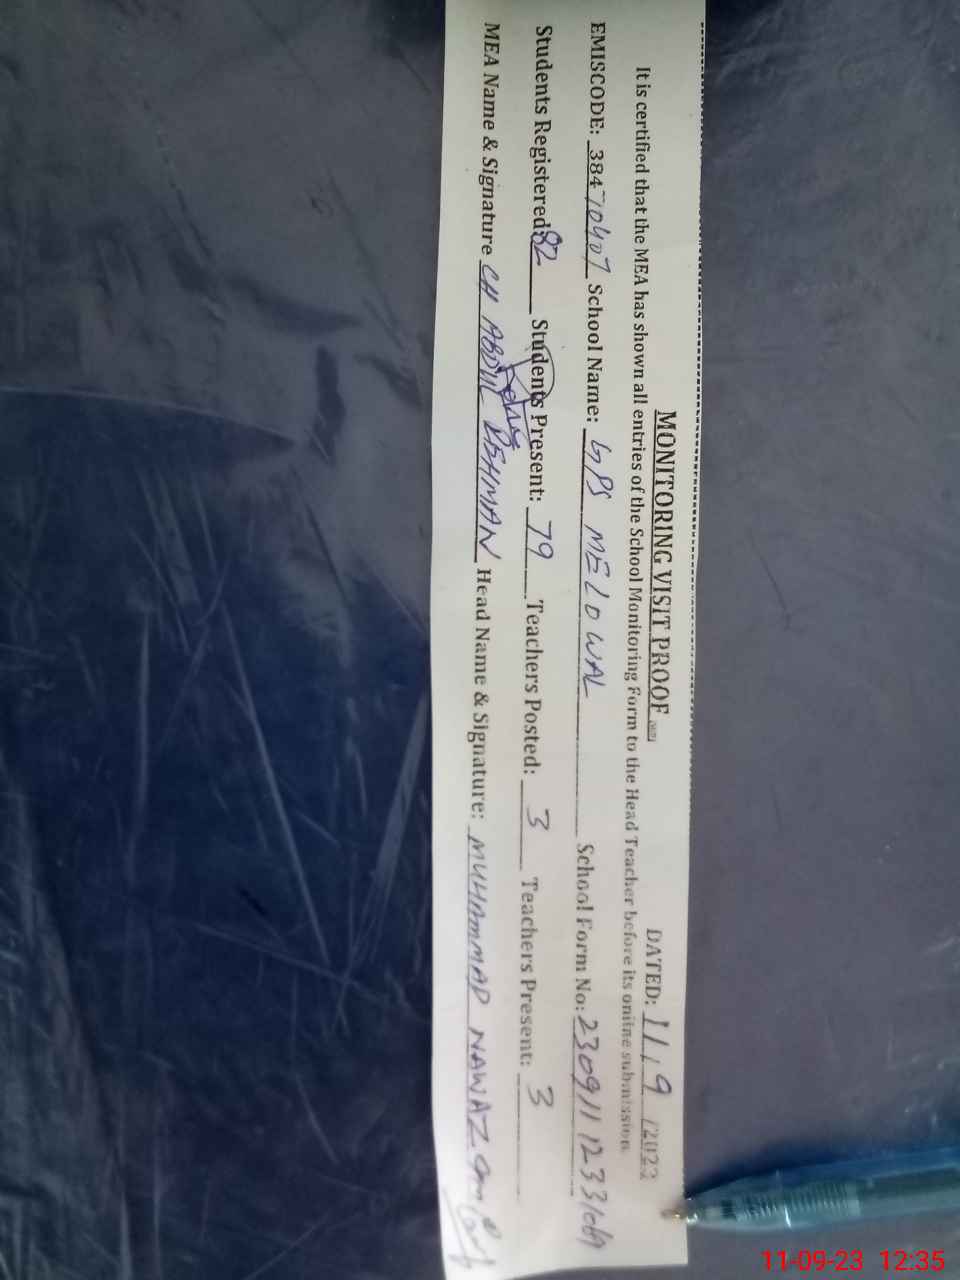 MONITORING VISIT PROOF DATED: 11/9/2023
It is certified that the MEA has shown all entries of the School Monitoring Form to the Head Teacher before its online submission.
EMISCODE: 38470407 School Name: GPS MELOWAL School Form No: 230911 1233
Students Registered: 82 Students Present: 79 Teachers Posted: 3 Teachers Present: 3
MEA Name & Signature CH ABDUL REHMAN Head Name & Signature: MUHAMMAD NAWAZ
11-09-23 12:35